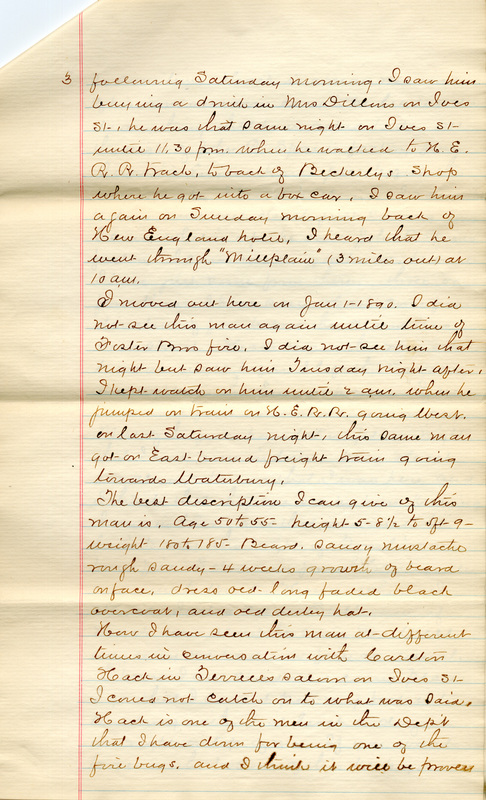 3 following Saturday morning, I saw him
buying a drink in Mrs Dillons on Ives
St., he was that same night on Ives St
until 11,30 pm. when he walked to N. E.
R. R. track, to back of Beckerlys Shop
where he got into a box car, I saw him
again on Sunday morning back of
New England hotel, I heard that he
went through "Millplain" (3 miles out) at
10 am.
I moved out here on Jan 1-1890. I did
not see this man again until time of
Foster Bros fire. I did not see him that
night but saw him Tuesday night after,
I kept watch on him until 2 am. when he
jumped on train on N. E. R. R. going West.
on last Saturday night, this same man
got on East bound freight train going
towards Waterbury,
The best description I can give of this
man is, Age 50 to 55- height 5-8 1/2 to 5ft 9-
weight 180 to 185- Beard. sandy mustache
rough sandy - 4 weeks growth of beard
on face, dress old long faded black
overcoat, and old derby hat.
Now I have seen this man at different
times in conversation with Carlton
in saloon on Ives St
I could not catch on to what was said.
is one of the men in the Dept
that I have down for being one of the
fire bugs, and I think it will be proven